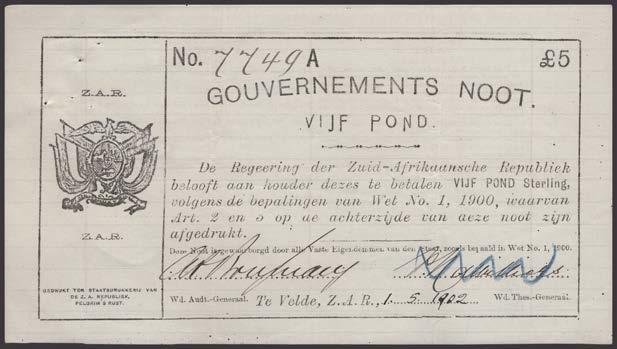 No. 7749 A £5
GOUVERNEMENTS NOOT.
VIJF POND.
Z.A.R.
De Regeering der Zuid-Afrikaansche Republiek
belooft aan houder dezes te betalen VIJF POND Sterling,
volgens de bepalingen van Wet No. 1, 1900, waarvan
Art. 2 en 5 op de achterzijde van deze noot zijn
afgedrukt.
Z.A.R.
Deze Noot is gewaarborgd door alle Vaste Eigendommen van den Staat, zooals bepaald in Wet No. 1, 1900.
GEDRUKT TER STAATSDRUKKERIJ VAN
DE Z. A. REPUBLIEK,
PELGRIM'S RUST.
Wd. Audt.-Generaal. Te Velde, Z.A.R., 1. 5. 1902 Wd. Thes.-Generaal.